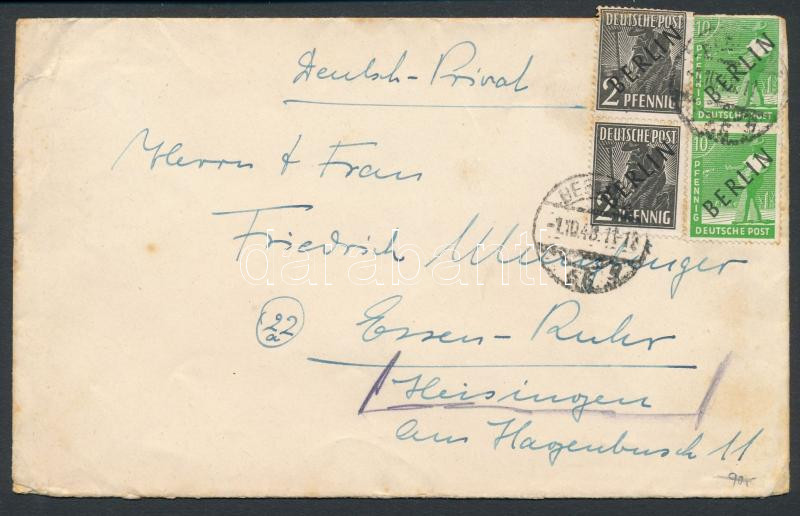 DEUTSCHE POST
BERLIN
2 PFENNIG
10 PFENNIG
BERLIN
DEUTSCHE POST
DEUTSCHE POST
BERLIN
2 PFENNIG
10 PFENNIG
BERLIN
DEUTSCHE POST
Deutsch-Privat
Herrn & Frau
Friedrich
22
a
Essen-Ruhr
Heisingen
Am Hagenbusch 11
-1.10.48.17-18
darabanth.com
90,-